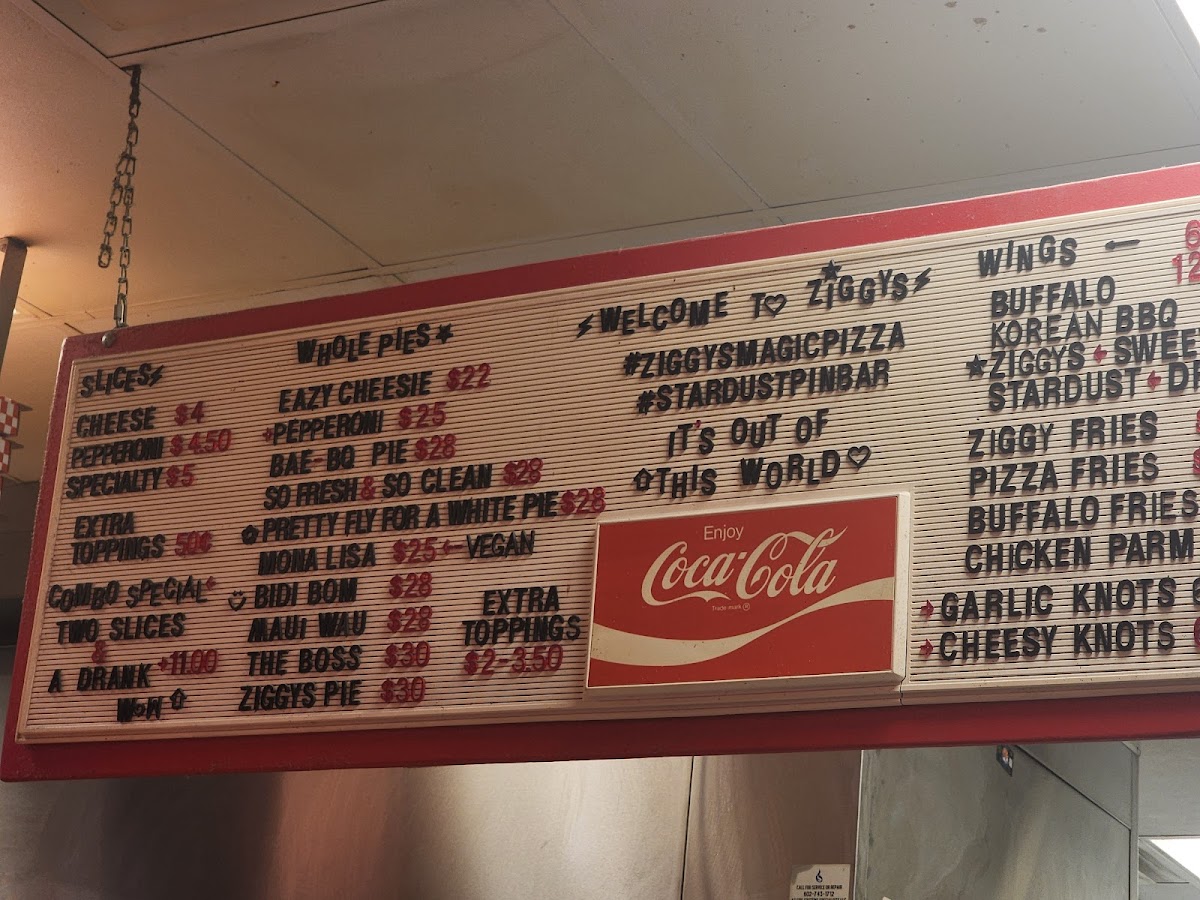 SLICES
CHEESE $4
PEPPERONI $4.50
SPECIALTY $5
EXTRA
TOPPINGS 50¢
COMBO SPECIAL
TWO SLICES
&
A DRANK 11.00
WOW
WHOLE PIES
EAZY CHEESIE $22
PEPPERONI $25
BAE-BQ PIE $28
SO FRESH & SO CLEAN $28
PRETTY FLY FOR A WHITE PIE $28
MONA LISA $25 ← VEGAN
BIDI BOM $28
MAUI WAU $28
THE BOSS $30
ZIGGYS PIE $30
EXTRA
TOPPINGS
$2-3.50
WELCOME TO ZIGGYS
#ZIGGYSMAGICPIZZA
#STARDUSTPINBAR
IT'S OUT OF
THIS WORLD
Enjoy
Coca-Cola
Trade mark ®
WINGS — 6
12
BUFFALO
KOREAN BBQ
ZIGGYS SWEE
STARDUST DR
ZIGGY FRIES
PIZZA FRIES
BUFFALO FRIES
CHICKEN PARM
GARLIC KNOTS
CHEESY KNOTS
CALL FOR SERVICE OR REPAIR
602-743-1712